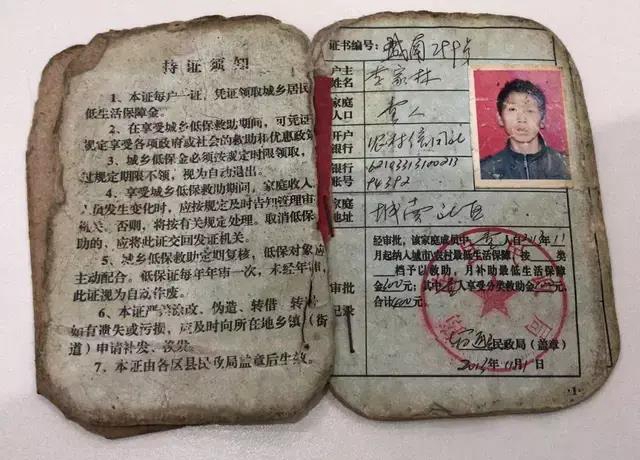 持证须知
1、本证每户一证，凭证领取城乡居民
低生活保障金。
2、在享受城乡低保救助期间，可凭证
规定享受各项政府或社会的救助和优惠政策
3、城乡低保金必须按规定时限领取，
过规定期限不领，视为自动退出。
4、享受城乡低保救助期间，家庭收入
人员发生变化时，应按规定及时告知管理审
机关，否则，将按有关规定处理。取消低保
助的，应将此证交回发证机关。
5、城乡低保救助定期复核，低保对象应
主动配合。低保证每半年审一次，未经年审
此证视为自动作废。
6、本证严禁涂改、伪造、转借、转
如有遗失或污损，应及时向所在地乡镇（街
道）申请补发、换发。
7、本证由各区县民政局盖章后生效。
证书编号：
户主
姓名 李家林
家庭
人口 壹人
开户
银行
银行 62193313100213
账号 94392
家庭
地址
审批
记录
经审批，该家庭成员中 壹 人自2013年11
月起纳入城市/农村最低生活保障，按 类
档予以救助，月补助最低生活保障
金400元；其中 人享受分类救助金 元，
合计400元。
民政局（盖章）
2013年11月1日
·1·